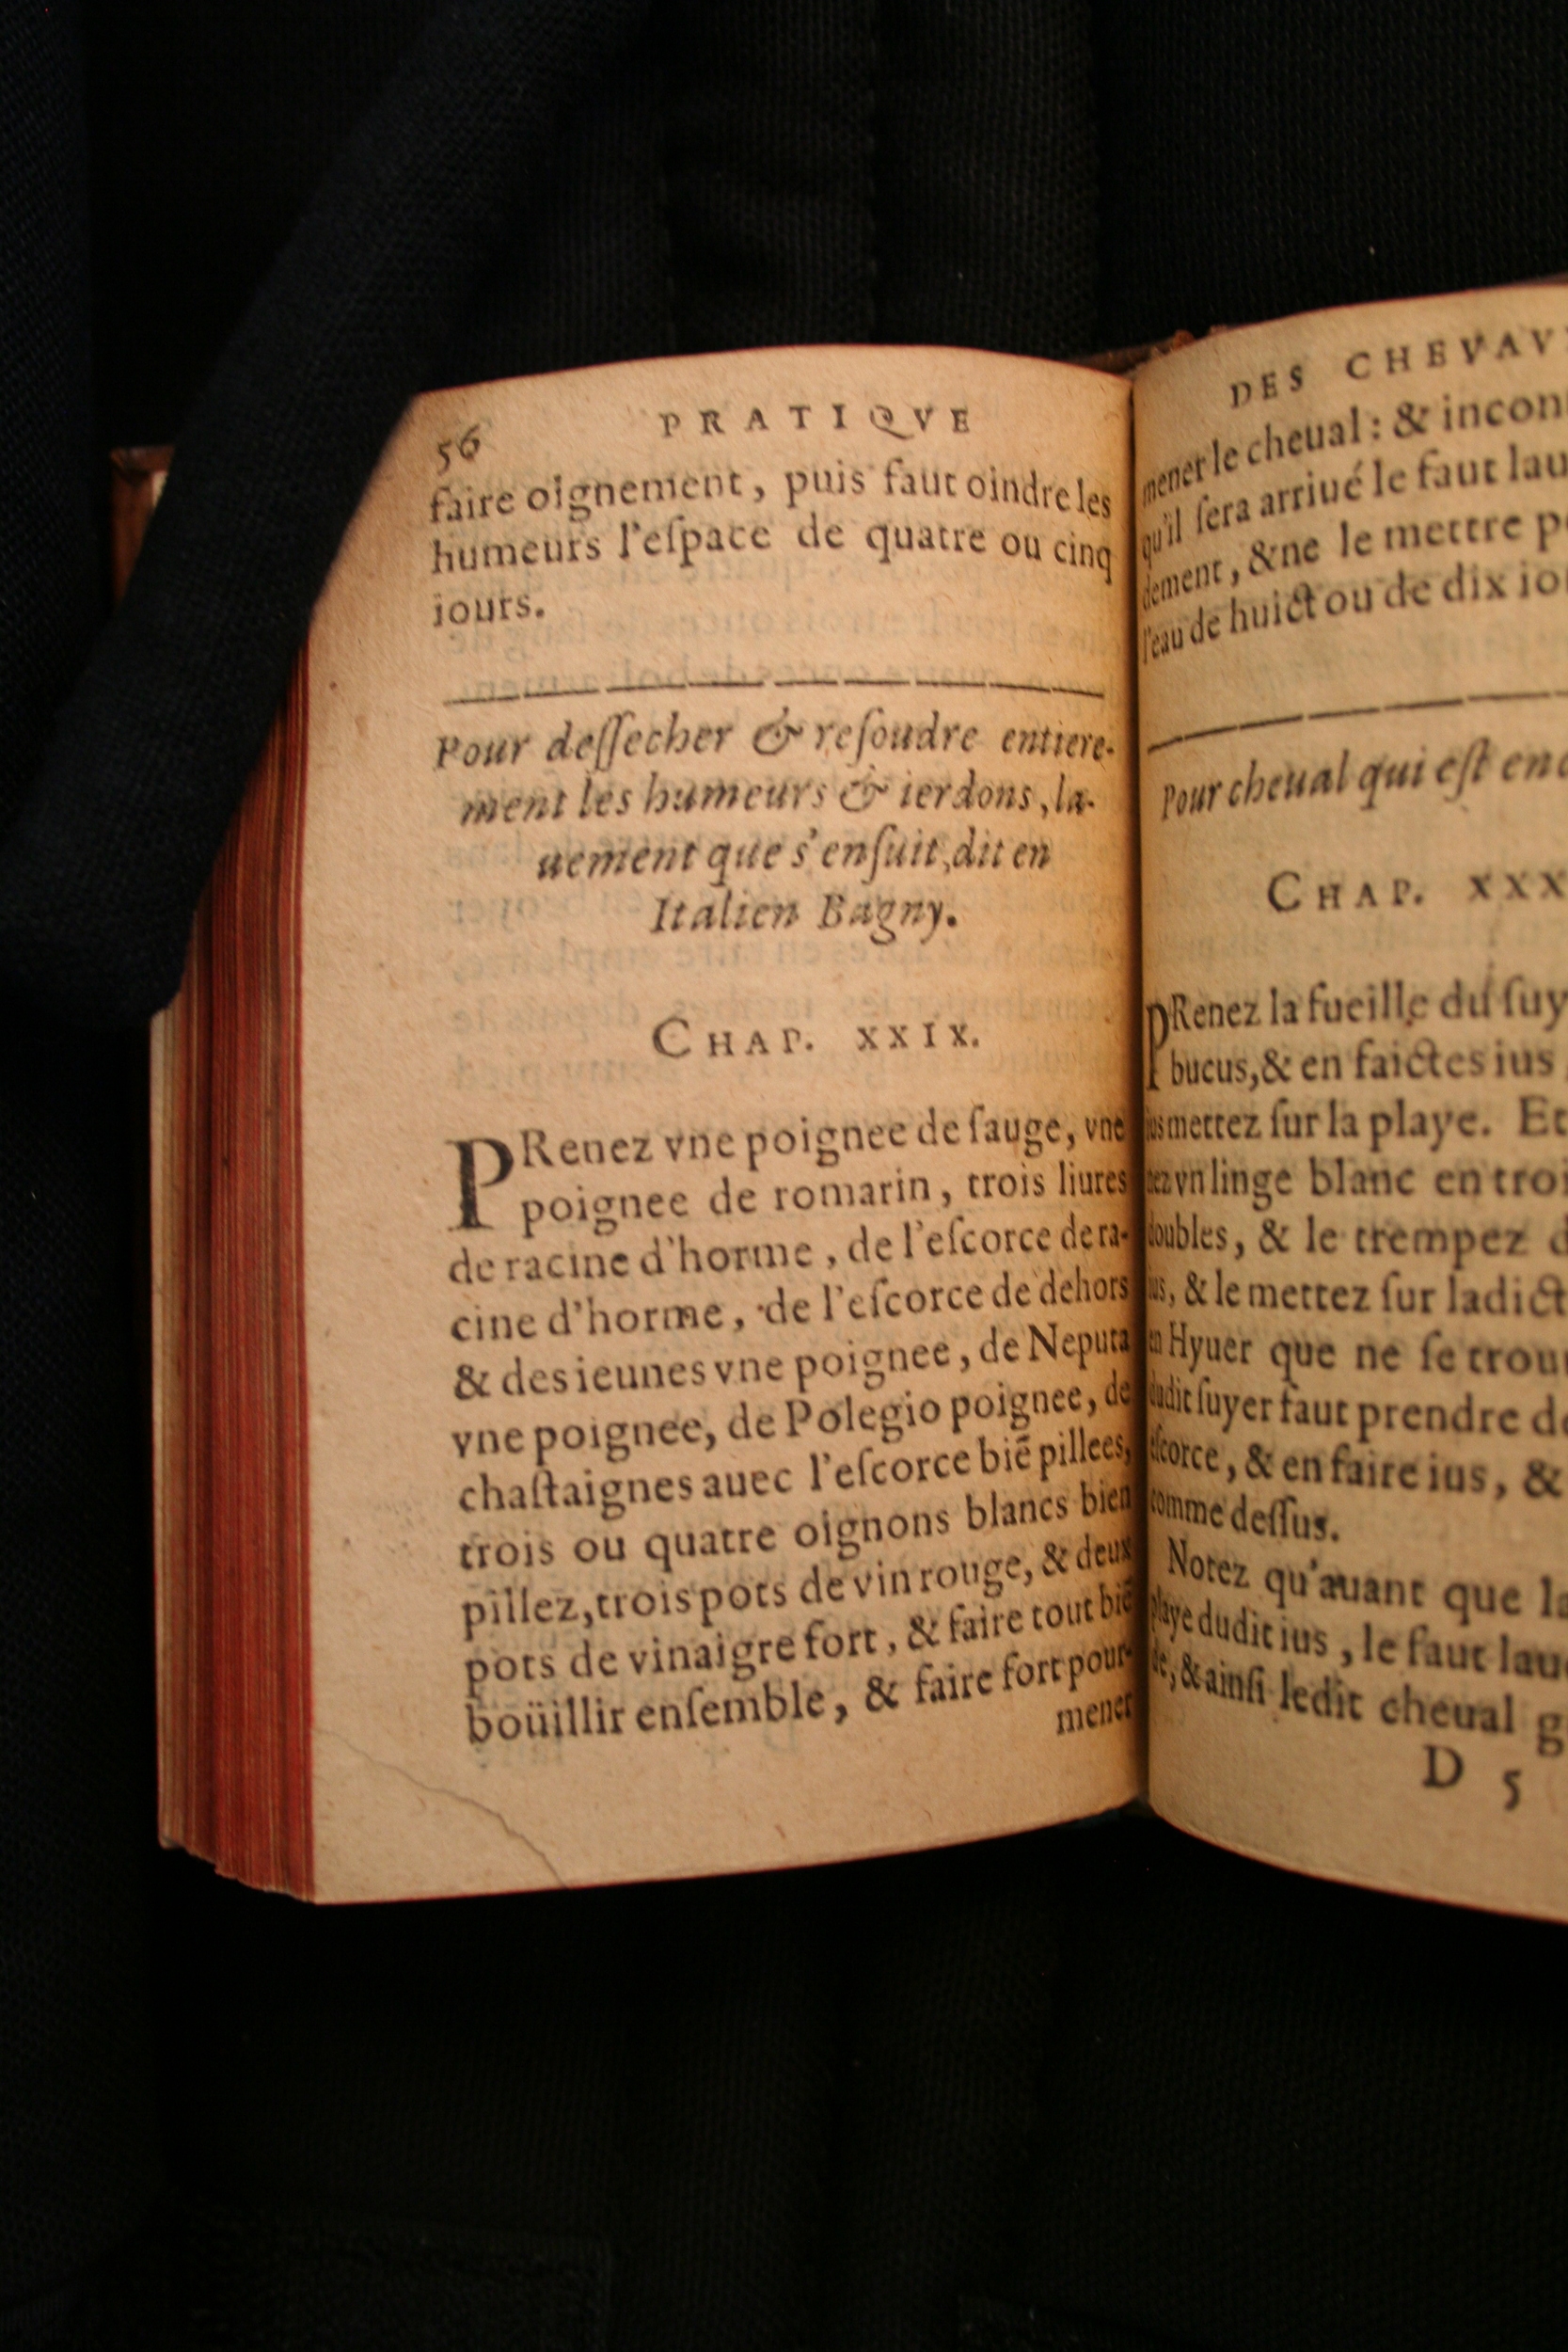 56 PRATIQVE
faire oignement, puis faut oindre les
humeurs l'eſpace de quatre ou cinq
iours.
Pour deſſecher & reſoudre entiere-
ment les humeurs & ierdons, la-
uement que s'enſuit, dit en
Italien Bagny.
CHAP. XXIX.
PRenez vne poignee de ſauge, vne
poignee de romarin, trois liures
de racine d'horme, de l'eſcorce de ra-
cine d'horme, de l'eſcorce de dehors
& des ieunes vne poignee, de Neputa
vne poignee, de Polegio poignee, de
chaſtaignes auec l'eſcorce biẽ pillees,
trois ou quatre oignons blancs bien
pillez, trois pots de vin rouge, & deux
pots de vinaigre fort, & faire tout biẽ
boüillir enſemble, & faire fort pour-
mener
DES CHEVAV
mener le cheual: & incon
qu'il ſera arriué le faut lau
dement, & ne le mettre p
l'eau de huict ou de dix io
Pour cheual qui eſt en
CHAP. XXX
PRenez la fueille du ſuy
bucus, & en faictes ius
ius mettez ſur la playe. Et
vn linge blanc en troi
doubles, & le trempez d
ius, & le mettez ſur ladict
en Hyuer que ne ſe trou
dudit ſuyer faut prendre d
eſcorce, & en faire ius, &
comme deſſus.
Notez qu'auant que la
playe dudit ius, le faut lau
de, & ainſi ledit cheual g
D 5